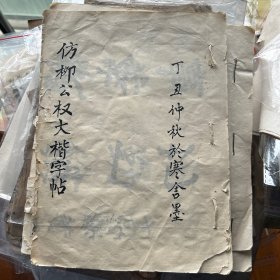 丁丑仲秋於寒舍墨
仿柳公权大楷字帖